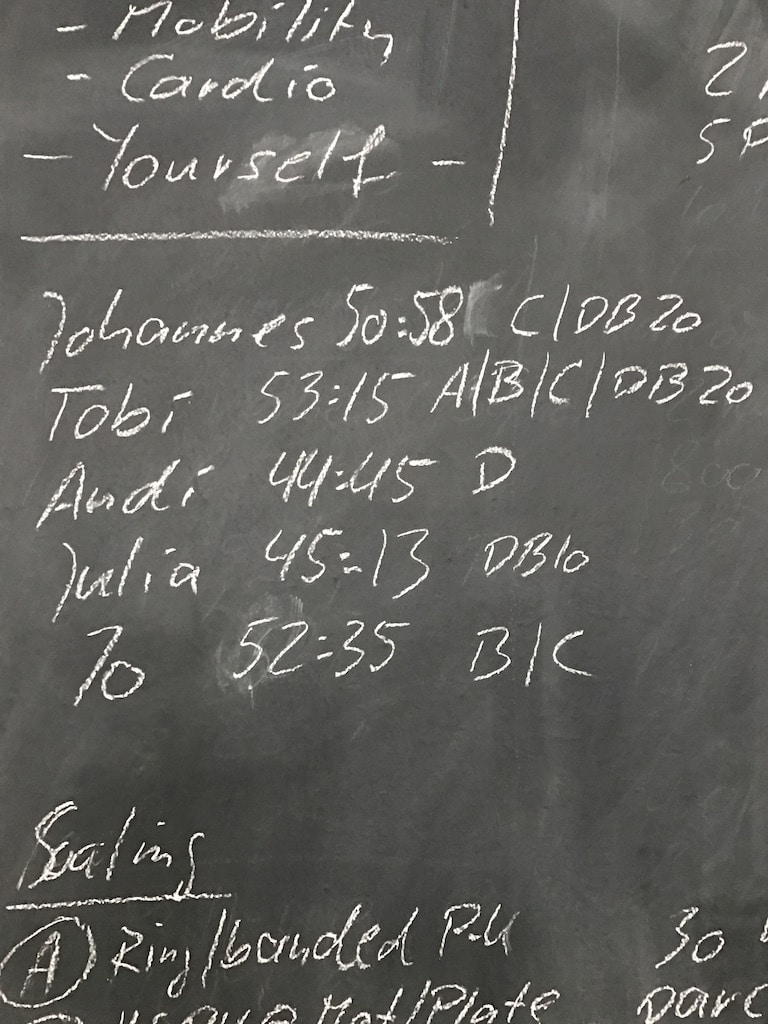 - Mobility
- Cardio
- Yourself -
2
5
Johannes 50:58 C/DB 20
Tobi 53:15 A/B/C/DB 20
Andi 44:45 D
Julia 45:13 DB10
Jo 52:35 B/C
Scaling
A Ring/banded P.U 30
Mat/Plate